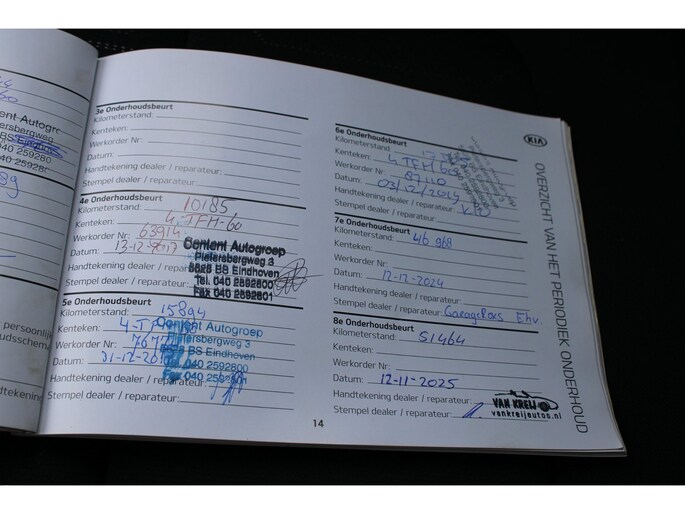 Content Autogroep
3e Onderhoudsbeurt
Kilometerstand:
Kenteken:
Werkorder Nr:
Datum:
Handtekening dealer / reparateur:
Stempel dealer / reparateur:
4e Onderhoudsbeurt
Kilometerstand: 10185
Kenteken: 4-TFH-60
Werkorder Nr: 63914
Datum: 13-12-2017
Handtekening dealer / reparateur:
Stempel dealer / reparateur:
Content Autogroep
Pietersbergweg 3
5628 BS Eindhoven
Tel. 040 2592800
Fax 040 2592801
5e Onderhoudsbeurt
Kilometerstand: 15894
Kenteken:
Werkorder Nr:
Datum:
Handtekening dealer / reparateur:
Stempel dealer / reparateur:
Content Autogroep
Pietersbergweg 3
BS Eindhoven
040 2592800
14
KIA
OVERZICHT VAN HET PERIODIEK ONDERHOUD
6e Onderhoudsbeurt
Kilometerstand:
Kenteken:
Werkorder Nr:
Datum: 03/12/2019
Handtekening dealer / reparateur:
Stempel dealer / reparateur:
7e Onderhoudsbeurt
Kilometerstand: 46 968
Kenteken:
Werkorder Nr:
Datum: 12-12-2024
Handtekening dealer / reparateur:
Stempel dealer / reparateur:
8e Onderhoudsbeurt
Kilometerstand: 51464
Kenteken:
Werkorder Nr:
Datum: 12-11-2025
Handtekening dealer / reparateur:
Stempel dealer / reparateur:
VAN KREIJ
vankreijautos.nl